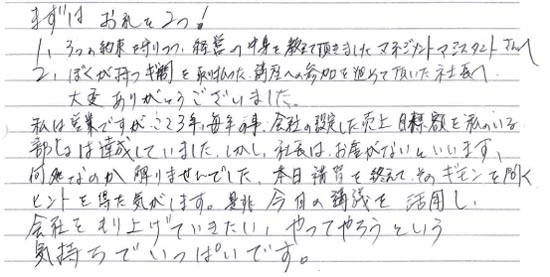 まずは お礼を2つ!
1. 3つの約束を守りつつ、経営の中身を教えて頂きましたマネジメントアシスタントさんへ
2. ぼくが持つ を取り払った、講座への参加を進めて頂いた社長へ
大変ありがとうございました。
私は営業ですが、ここ3年、毎年の事、会社の設定した売上目標額を私のいる
部しょは達成していました。しかし、社長は、お金がないといいます、
何故なのか解りませんでした。本日講習を終えて、そのギモンを開く
ヒントを得た気がします。是非今日の講義を活用し、
会社をもり上げていきたい、やってやろうという
気持ちでいっぱいです。